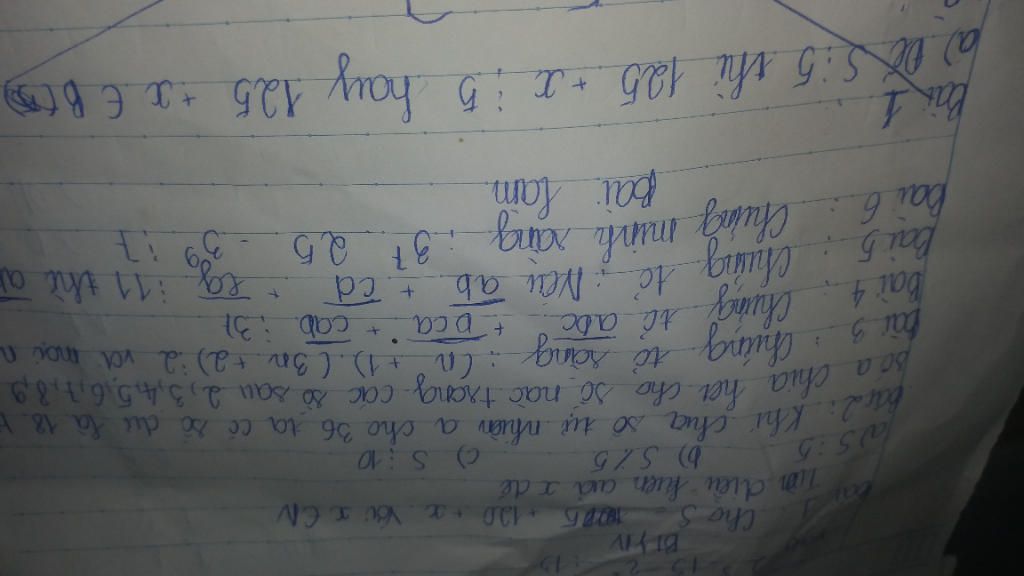 BTVN
Bài 1 : Cho S = 125 + 120 + x với x ∈ N
Tìm điều kiện của x để
a) S ⋮ 5 b) S ⋮̸ 5 c) S ⋮ 10
Bài 2 : Khi chia số tự nhiên a cho 36 ta có số dư là 18 h
số a chia hết cho số nào trong các số sau 2, 3, 4, 5, 6, 7, 8, 9
Bài 3 : Chứng tỏ rằng : (n + 1) . (3n + 2) ⋮ 2 với mọi n
Bài 4 : Chứng tỏ abc + bca + cab ⋮ 37
Bài 5 : Chứng tỏ : Nếu ab + cd + eg ⋮ 11 thì ab
Bài 6 : Chứng minh rằng :
Bài làm
Bài 1
a) Để S ⋮ 5 thì 125 + x ⋮ 5 hay 125 + x ∈ B(5)